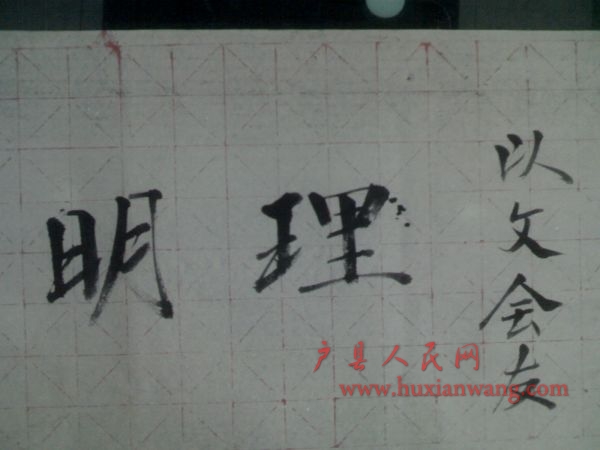 明理
以文会友
户县人民网
www.huxianwang.com